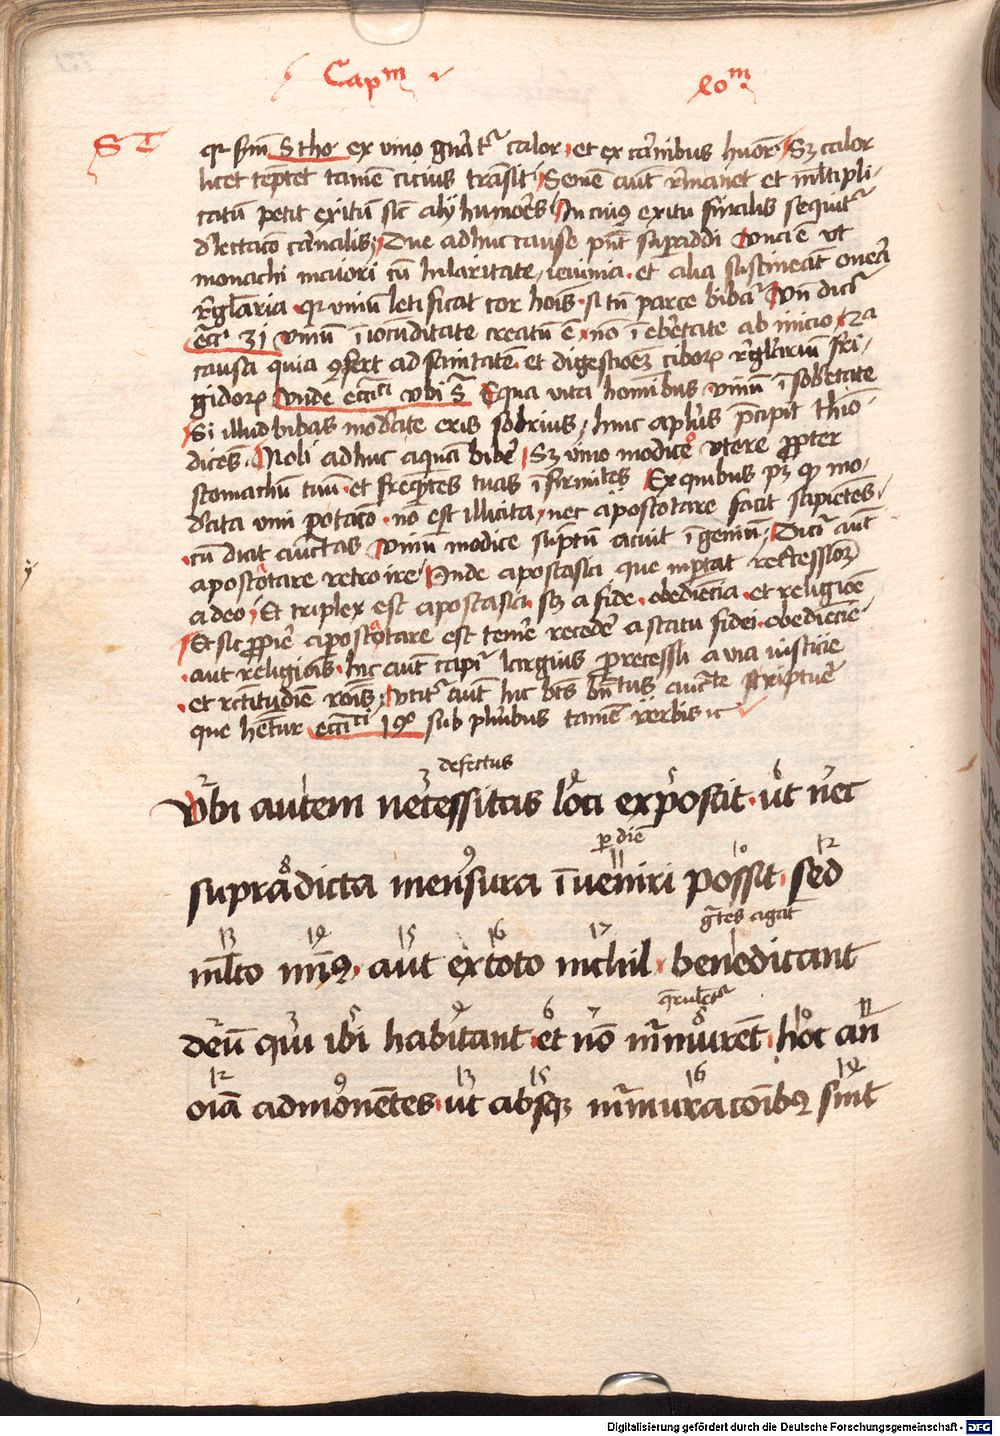 Capm v xlom
S T
qr scdm S tho ex vino gnatr calor et ex carnibus humor Sz calor
licet teptet tame cicius trasit Seme aut rmanet et mltipli-
catu petit exitu sic alij humores In cuius exitu finalis sequitr
dlectaco carnalis Due adhuc cause pnt supaddi Una e ut
monachi maiori cu hilaritate ieiunia et alia sustineat onera
rglaria qr vinu letificat cor hois si tn parce bibat Vn dicr
ecci 31 Vinu i iocunditate creatu e no i ebrietate ab inicio 2a
causa quia 9fert ad sanitate et digestione ciborum rglariu fri-
gidorum Unde eccci ubi S Equa vita hominibus vinu i sobrietate
Si illud bibas modrate eris sobrius hinc aplus pcipit thio-
dices Noli adhuc aqua bibe Sz vino modico utere propter
stomachu tuu et freqntes tuas ifirmites Ex quibus pz quod mo-
drata vini potaco no est illicita nec apostotare facit sapietes
cu dicit auctas Vinu modice suptu acuit igeniu Dicr aut
apostotare retro ire Inde apostasia que inportat recessioem
a deo Et triplex est apostasia scz a fide obediencia et religioe
Et sic proprie apostotare est temere recede a statu fidei obediencie
aut religiois hic aut capir largius pro recessu a via iusticie
et rctitudie rois Utitr aut hic bts bndtus auctte scripture
que hetur eccci 19o sub pluribus tame verbis ic
defectus
Ubi autem necessitas loci exposcit ut nec
per die
supradicta mensura iveniri possit sed
grates agat
mlto min9 aut ex toto nichil benedicant
qrulet
deu qui ibi habitant et no murmuret hoc an
oia admonetes ut absque murmuracoib9 sint
Digitalisierung gefördert durch die Deutsche Forschungsgemeinschaft - DFG